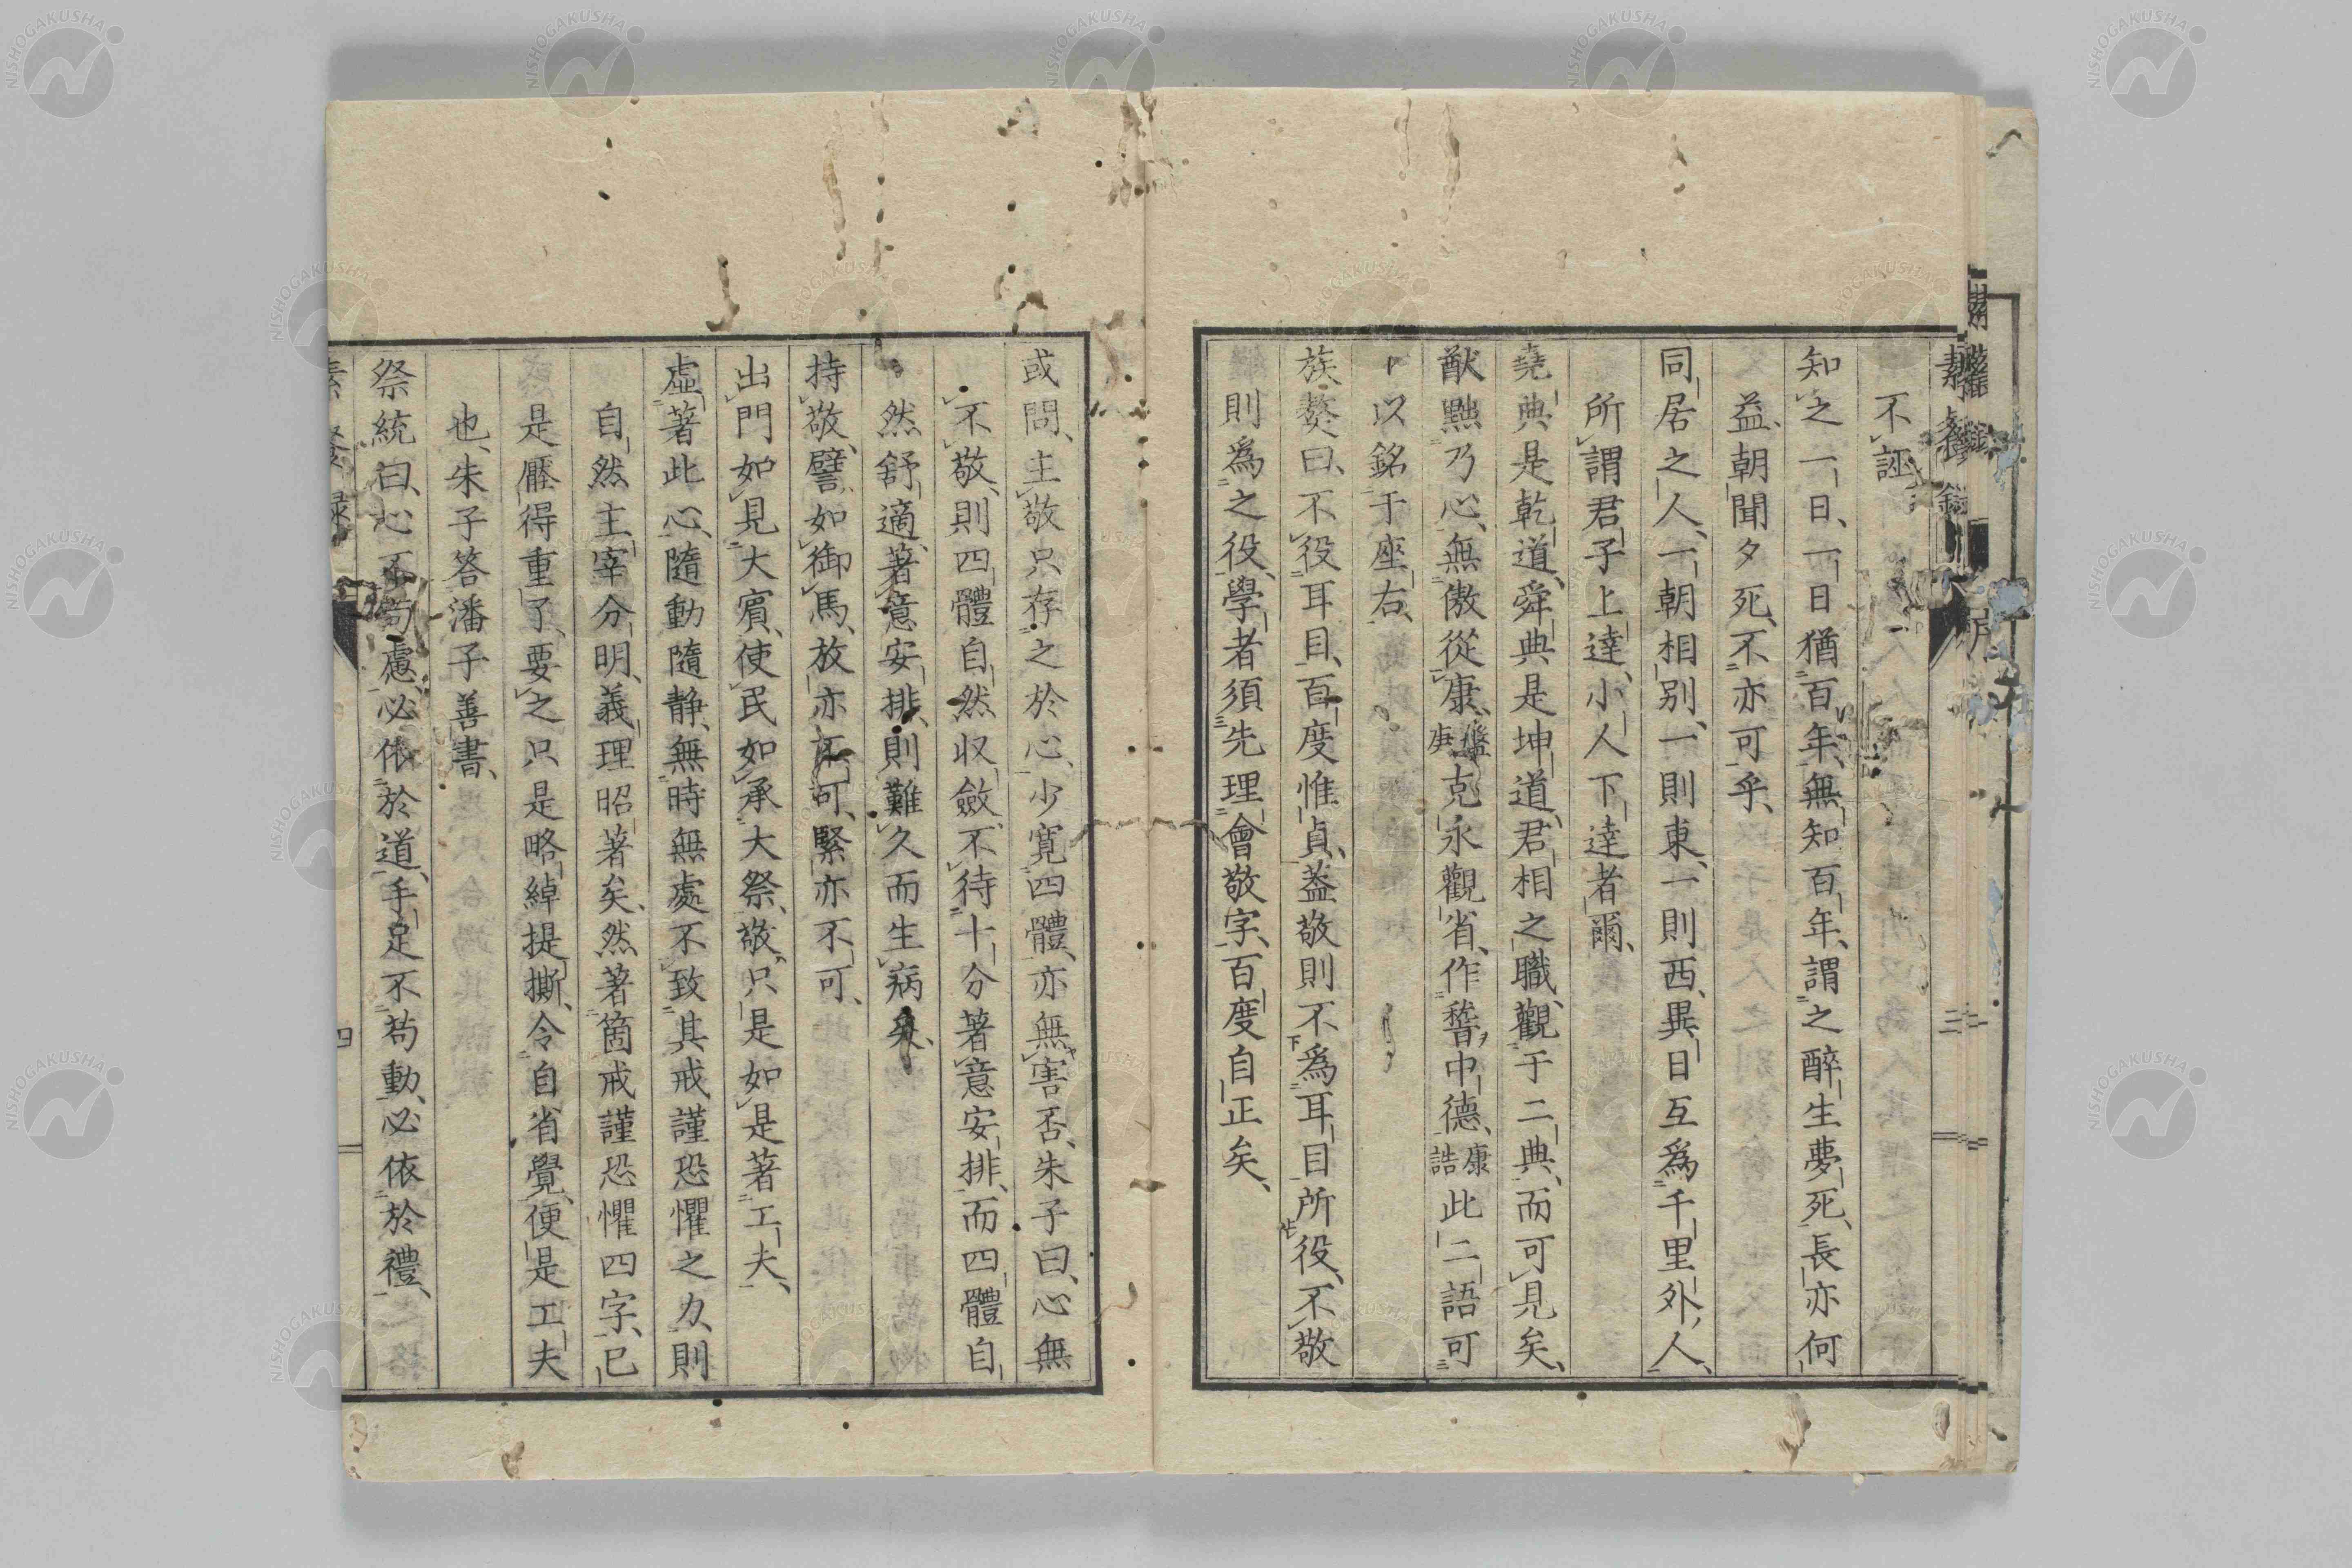 不誣
知之一日、一日猶百年、無知百年、謂之醉生夢死、長亦何
益、朝聞夕死、不亦可乎、
同居之人、一朝相別、一則東、一則西、異日互爲千里外人、
所謂君子上達、小人下達者爾、
堯典是乾道、舜典是坤道、君相之職、觀于二典、而可見矣、
猷黜乃心、無傲從康、盤庚克永觀省、作稽中德、康誥此二語可
以銘于座右、
族獒曰、不役耳目、百度惟貞、蓋敬則不爲耳目所役、不敬
則爲之役、學者須先理會敬字、百度自正矣、
或問、主敬只存之於心、少寬四體、亦無害否、朱子曰、心無
不敬、則四體自然収斂、不待十分著意安排、而四體自
然舒適、著意安排、則難久而生病矣、
持敬、譬如御馬、放亦不可、緊亦不可、
出門如見大賓、使民如承大祭、敬只是如是著工夫、
虛著此心、隨動隨静、無時無處不致其戒謹恐懼之力、則
自然主宰分明、義理昭著矣、然著箇戒謹恐懼四字、已
是壓得重了、要之只是略綽提撕、令自省覺、便是工夫
也、朱子答潘子善書、
祭統曰、心不苟慮、必依於道、手足不苟動、必依於禮、
四
NISHOGAKUSHA